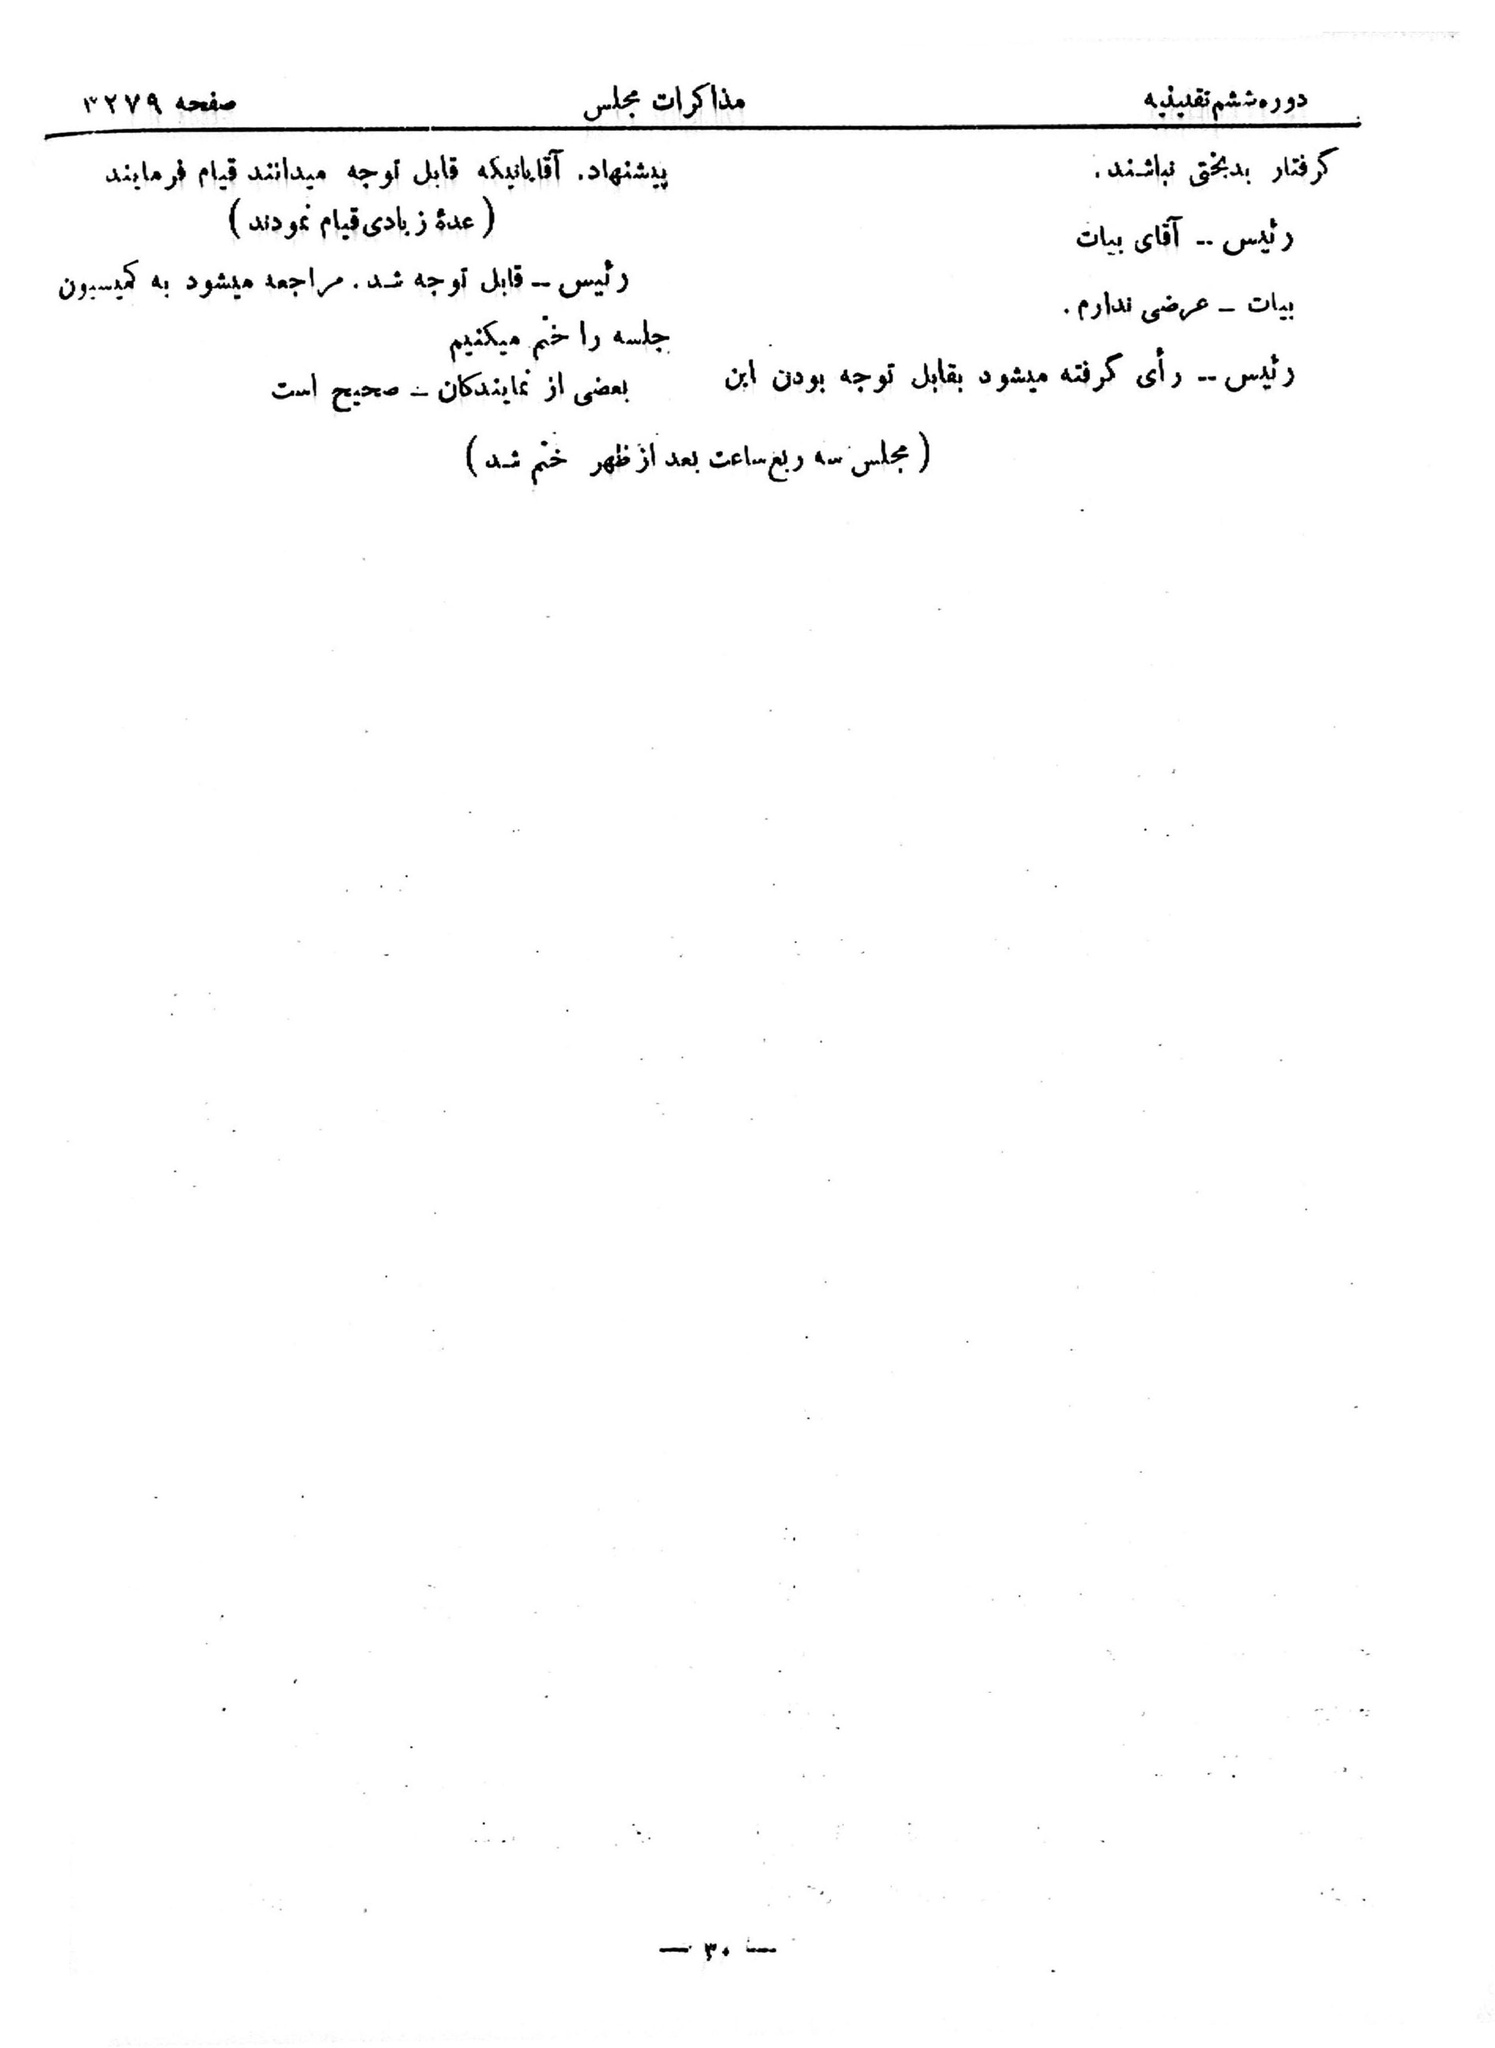 دوره ششم تقنینیه
مذاکرات مجلس
صفحه ۳۲۷۹
گرفتار بدبختی نباشند.
رئیس -- آقای بیات
بیات - عرضی ندارم.
رئیس -- رأی گرفته میشود بقابل توجه بودن این
پیشنهاد. آقایانیکه قابل توجه میدانند قیام فرمایند
(عدهٔ زیادی قیام نمودند)
رئیس - قابل توجه شد. مراجعه میشود به کمیسیون
جلسه را ختم میکنیم
بعضی از نمایندگان - صحیح است
(مجلس سه ربع ساعت بعد از ظهر ختم شد)
— ۳۰ —